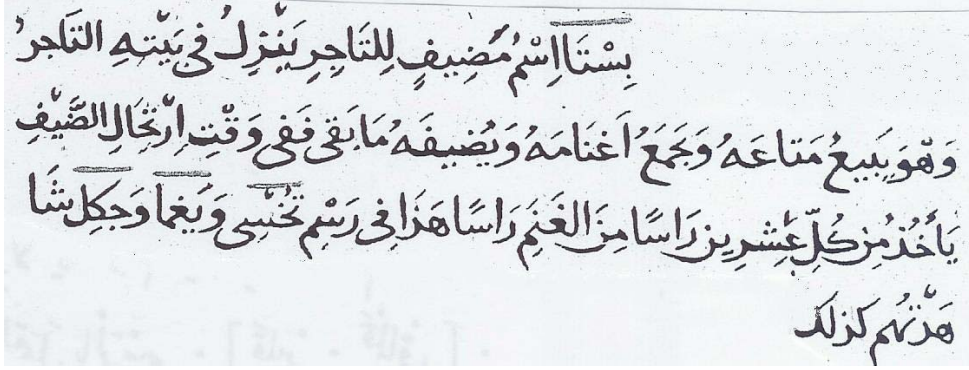 بِسْتَا اِسْمُ مُضِيفٍ لِلتَاجِرِ يَنْزِلُ فى بَيْتهِ التَاجرُ
وَهْوَ يَبِيعُ مَتاعَهُ وَيَجمَعُ اَغنَامَهُ وَيُضيفَهُ مَا بَقى فَفى وَقْتِ اِرْتِحَالِ الضَّيْفِ
يَأخُذُ مِن كُلِّ عِشرِين رَاسًا مِنَ الغَنَمِ رَاسًا هَذَا فى رَسْمِ تُخْسِى وَيَغما وَجكِل شَا
هَدْتهُم كذلك